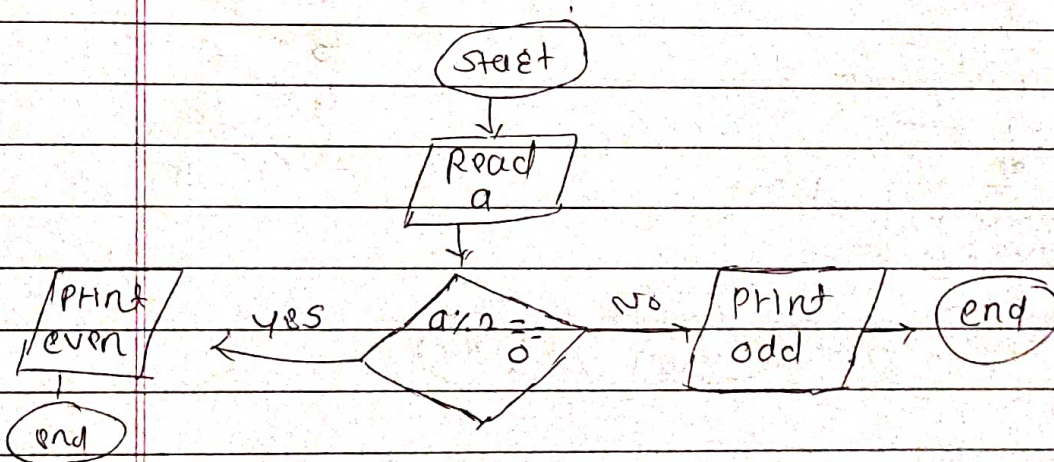 Start
Read
a
a%2==
0
Yes
Print
even
end
No
Print
odd
end